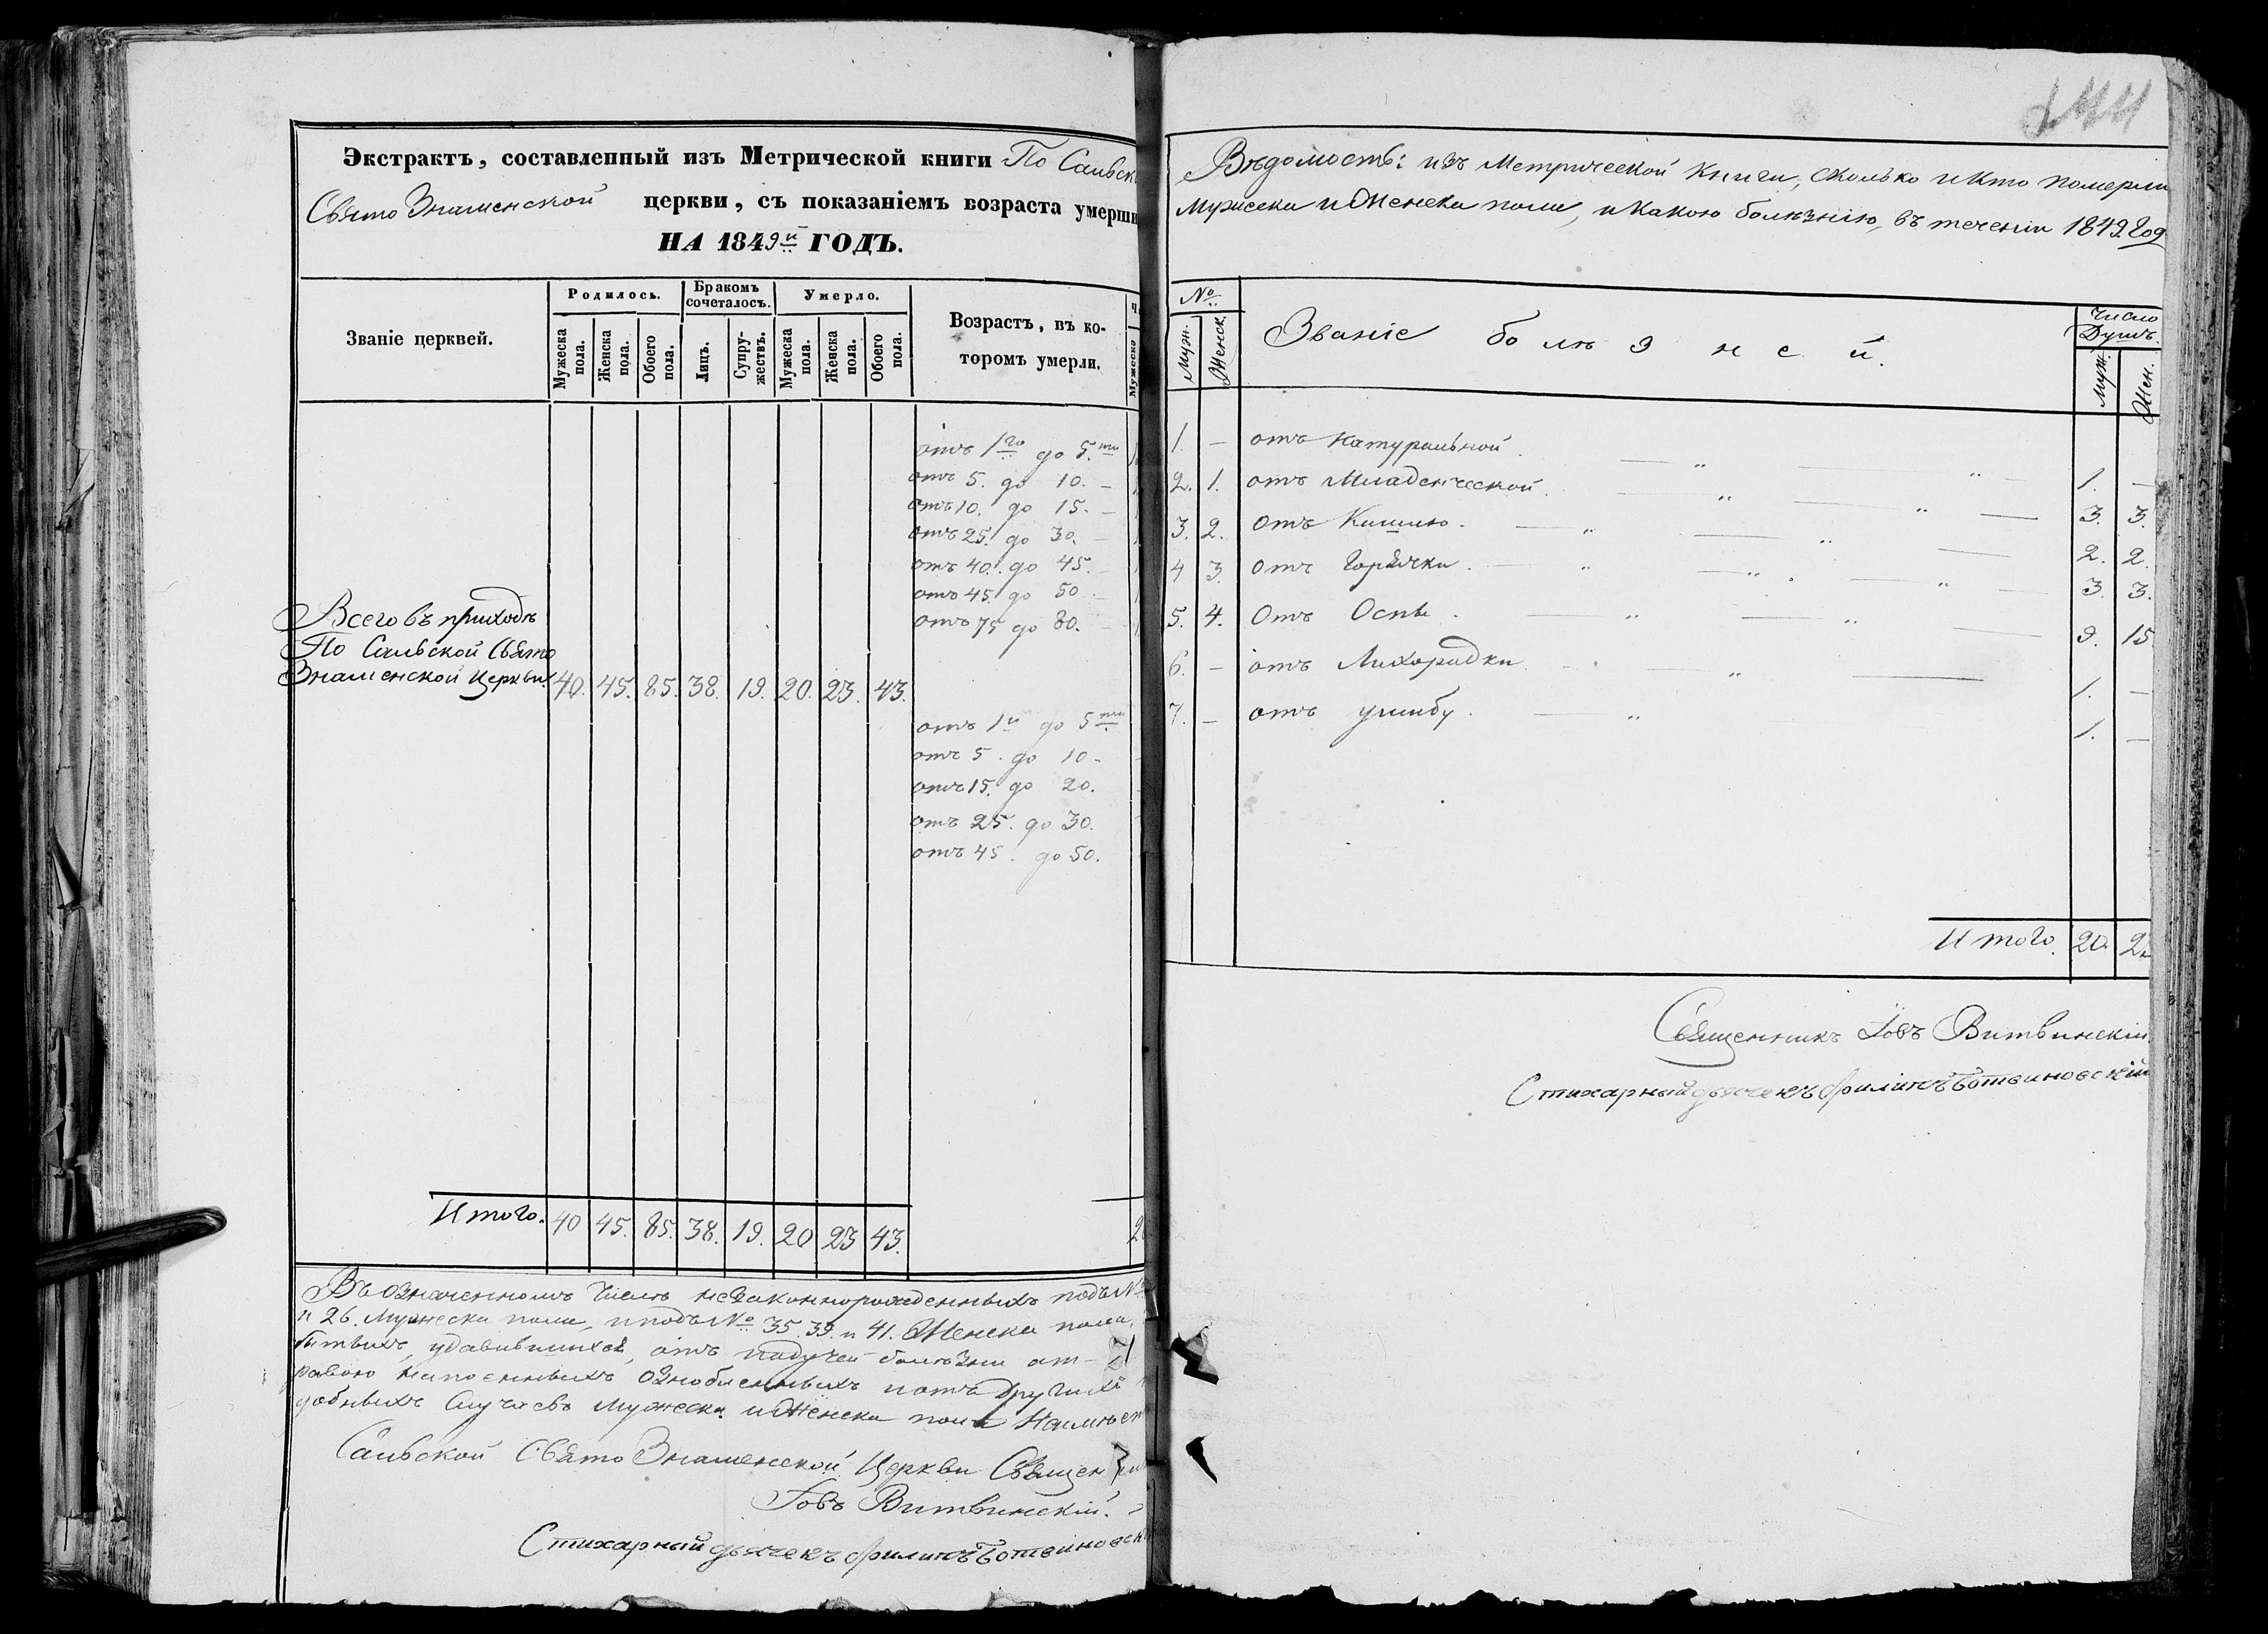 Экстрактъ, составленный изъ Метрической книги По Сальск
Свято Знаменской церкви, съ показаніемъ возраста умерши
НА 1849й ГОДЪ.
Званіе церквей.
Родилось.
Бракомъ сочеталось.
Умерло.
Возрастъ, въ ко-
торомъ умерли.
Мужеска пола.
Женска пола.
Обоего пола.
Лицъ.
Супру-жествъ.
Мужеска пола.
Женска пола.
Обоего пола.
Мужеска
отъ 1го до 5.ти
отъ 5. до 10. -
отъ 10. до 15. -
отъ 25. до 30. -
отъ 40. до 45. -
отъ 45. до 50 -
отъ 75 до 80. -
Всего въ приходѣ
По Сальской Свято
Знаменской Церкви. 40. 45. 85. 38. 19. 20. 23. 43.
отъ 1й до 5ти
отъ 5. до 10 -
отъ 15. до 20.
отъ 25. до 30.
отъ 45. до 50.
Итого. 40 45. 85. 38. 19. 20 23 43.
Въ означенномъ числѣ незаконнорожденныхъ подъ №
и 26. Мужеска пола, и подъ № 35. 39. и 41. Женска пола,
битыхъ, удавившихся, отъ падучей болѣзни от-
равою напоенныхъ ознобленныхъ и отъ другихъ
добныхъ Случаевъ Мужеска и Женска пола
Сальской Свято Знаменской Церкви Священ
Іовъ Витвинскій.
Стихарный дьячекъ Филипъ Ботвиновск
244
Вѣдомость: изъ Метрической Книги, сколько и кто померли
Мужеска и Женска пола, и какою болѣзнію, въ теченіи 1849. Год
№
Муж. Женск.
Званіе болѣзней.
Число Душъ.
Муж. Жен.
1. — отъ Натуральной. 1. —
2. 1. отъ Младенческой. 3. 3.
3. 2. отъ Кашлю. 2. 2.
4 3. отъ Горячки. 3. 3.
5. 4. Отъ Оспы. 9. 15
6. — отъ Лихорадки 1. —
7. — отъ ушибу. 1. —
Итого. 20. 2
Священникъ Іовъ Витвинскій
Стихарный дьячекъ Филипъ Ботвиновскій